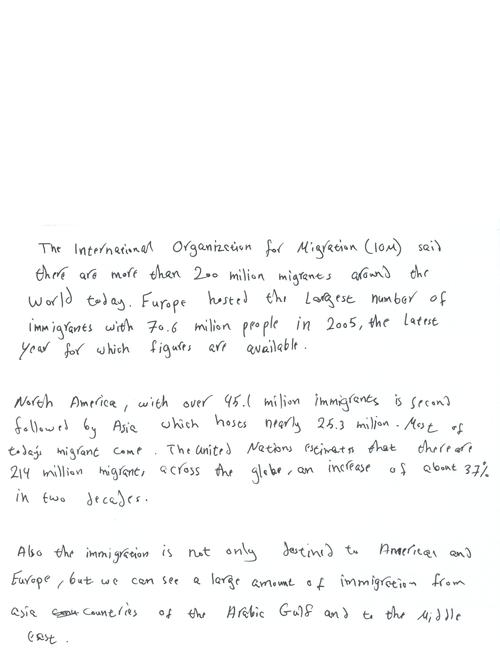 The International Organization for Migration (IOM) said
there are more than 200 milion migrants around the
World today. Europe hosted the Largest number of
immigrants with 70.6 milion people in 2005, the Latest
Year for which figures are available.
North America, with over 45.1 milion immigrants is second
followed by Asia which hosts nearly 25.3 milion. Most of
today's migrant come. The united Nations estimates that there are
214 million migrants across the globe, an increase of about 37%
in two decades.
Also the immigration is not only destined to Americas and
Europe, but we can see a large amount of immigration from
asia Countries of the Arabic Gulf and to the Middle
East.